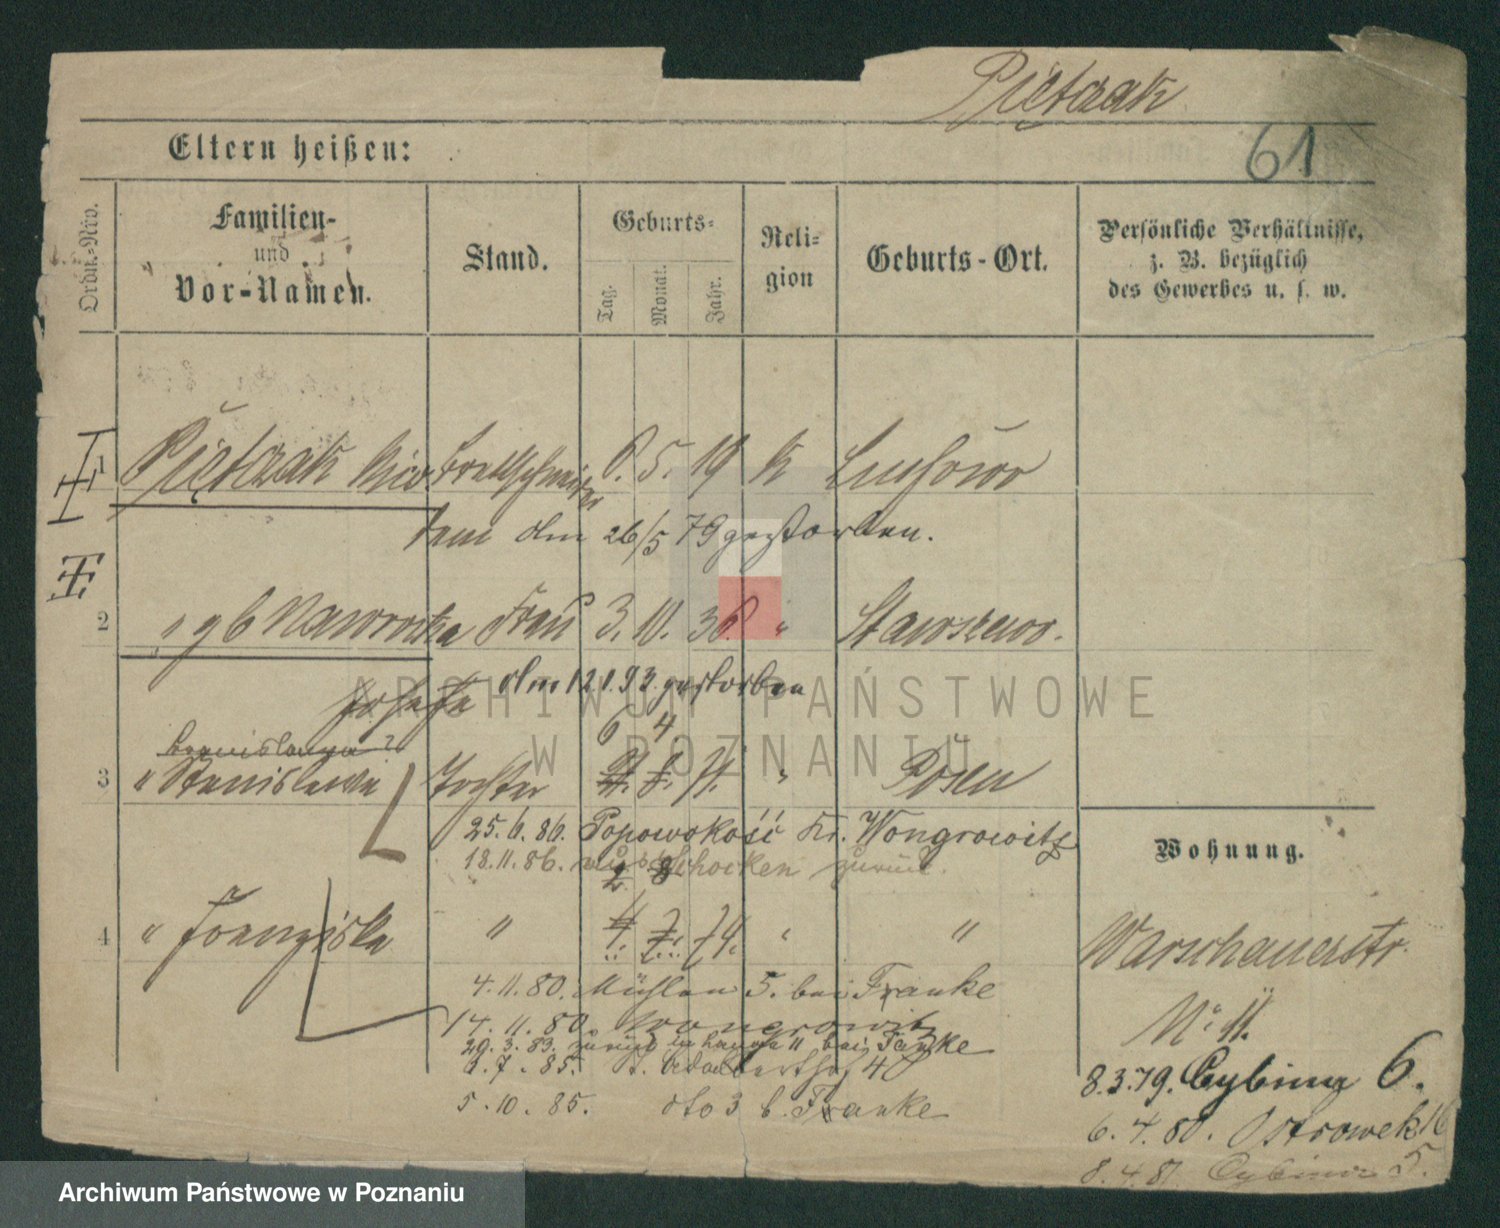 Pietrzak
61
Eltern heißen:
Ordn.-Nro.
Familien-
und
Vor-Namen.
Stand.
Geburts-
Tag.
Monat.
Jahr.
Reli-
gion
Geburts-Ort.
Persönliche Verhältnisse,
z. B. bezüglich
des Gewerbes u. s. w.
1 Pietrzak Nic. Brettschneider 6. 5. 19 k
den 26/5 79 gestorben.
2 " gb Nawrocka Frau 3. 11. 36 "
Josefa den 12 1. 93. gestorben
6 4
3 " Stanislawa Tochter 71. " Posen
25. 6. 86. Popowokość Kr. Wongrowitz
18. 11. 86. aus Schocken zurück.
2. 8
4 " Franziska " 74. " "
4. 11. 80. Mühlen 5. bei Franke
14. 11. 80. Wongrowitz
29. 3. 83. zurück 11 bei Franke
6. 7. 85. St. Adalberthof 4
5. 10. 85. dto 3 b. Franke
Wohnung.
Warschauerstr.
No 11.
8. 3. 79. Cybina 6.
6. 4. 80. Ostrowek 16
8. 4. 81 Cybina 5.
ARCHIWUM PAŃSTWOWE
W POZNANIU
Archiwum Państwowe w Poznaniu